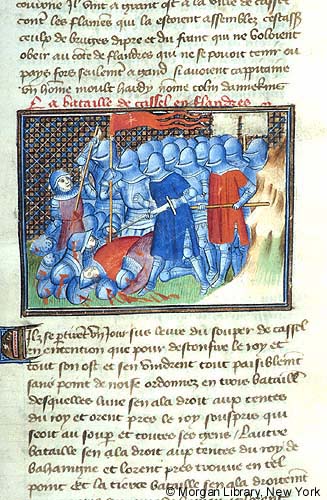 couronne Il vint a grant ost a la ville de cassel
cont les flames qui la estoient assemblez cestass
ceulx de bruges dipre et du franc qui ne voloient
obeir au cote de flandres qui ne se povoit tenir ou
pays fors seulemt a gand si avoient cappitaine
un home moult hardy nome colin dannekins
La bataille de cassel en flandres
Ilz se ptirēt un jour sus leure du souper de cassel
en entencion que pour desconfire le roy et
tout son ost et sen vindrent tout paisiblemt
sans point de noise ordonnez en trois batailles
desquelles lune sen ala droit aux tentes
du roy et orent pres le roy souspris qui
seoit au soup et toutes ses gens / Lautre
bataille sen ala droit aux tentes du roy de
bahaigne et lorent pres trouve en tel
point Et la tierce bataille sen ala droitemt
© Morgan Library, New York